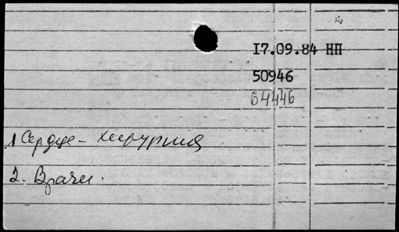 17.09.84 НП
50946
64446
1 Сердце - хирургия
2. Врачи.